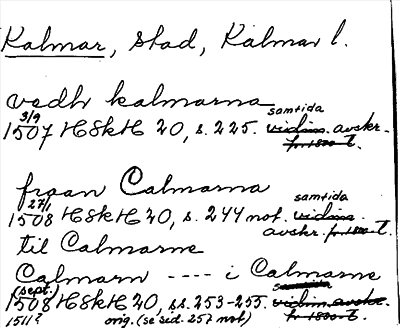 Kalmar, stad, Kalmar l.
vedh kalmarna
3/9 samtida
1507 HSkH 20, s. 225. vidim. avskr. fr. 1500-t.
fraan Calmarna
27/1 samtida
1508 HSkH 20, s. 244 not. vidim.
avskr. fr. 1500-t.
til Calmarne
Calmarn ---- i Calmarne
(sept.) samtida
1508 HSkH 20, ss. 253-255. vidim. avskr.
1511? orig. (se sid. 257 not) fr. 1500-t.